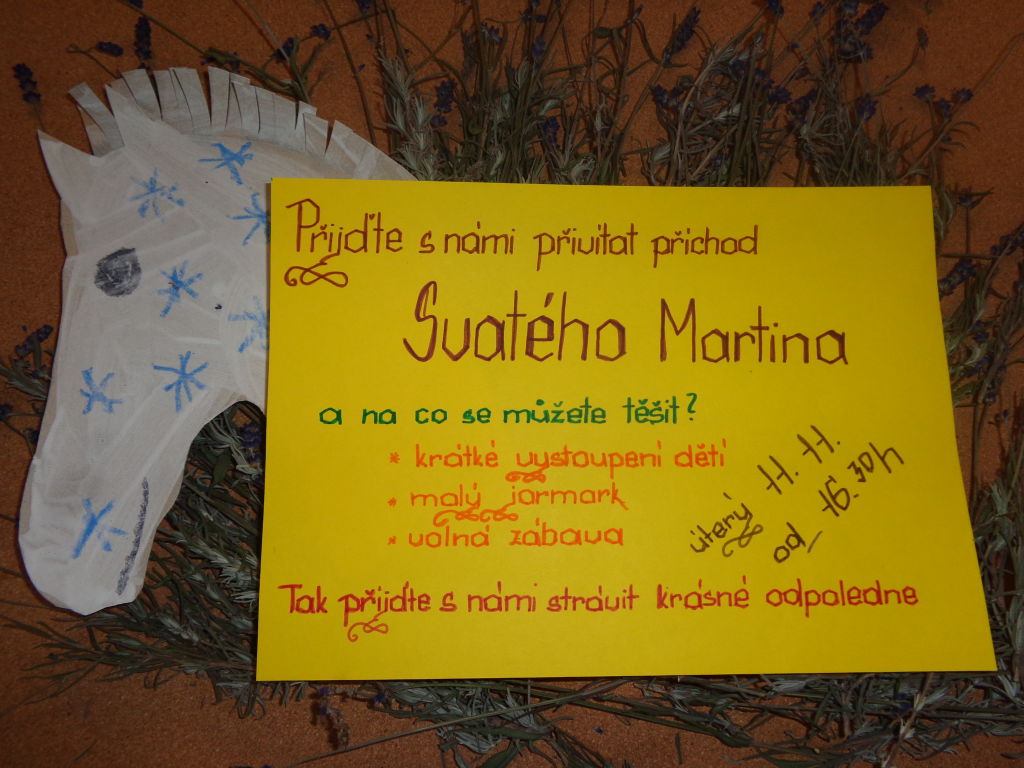 Přijďte s námi přivítat příchod
Svatého Martina
a na co se můžete těšit?
* krátké vystoupení dětí
* malý jarmark
* volná zábava
úterý 11. 11.
od 16.30 h
Tak přijďte s námi strávit krásné odpoledne